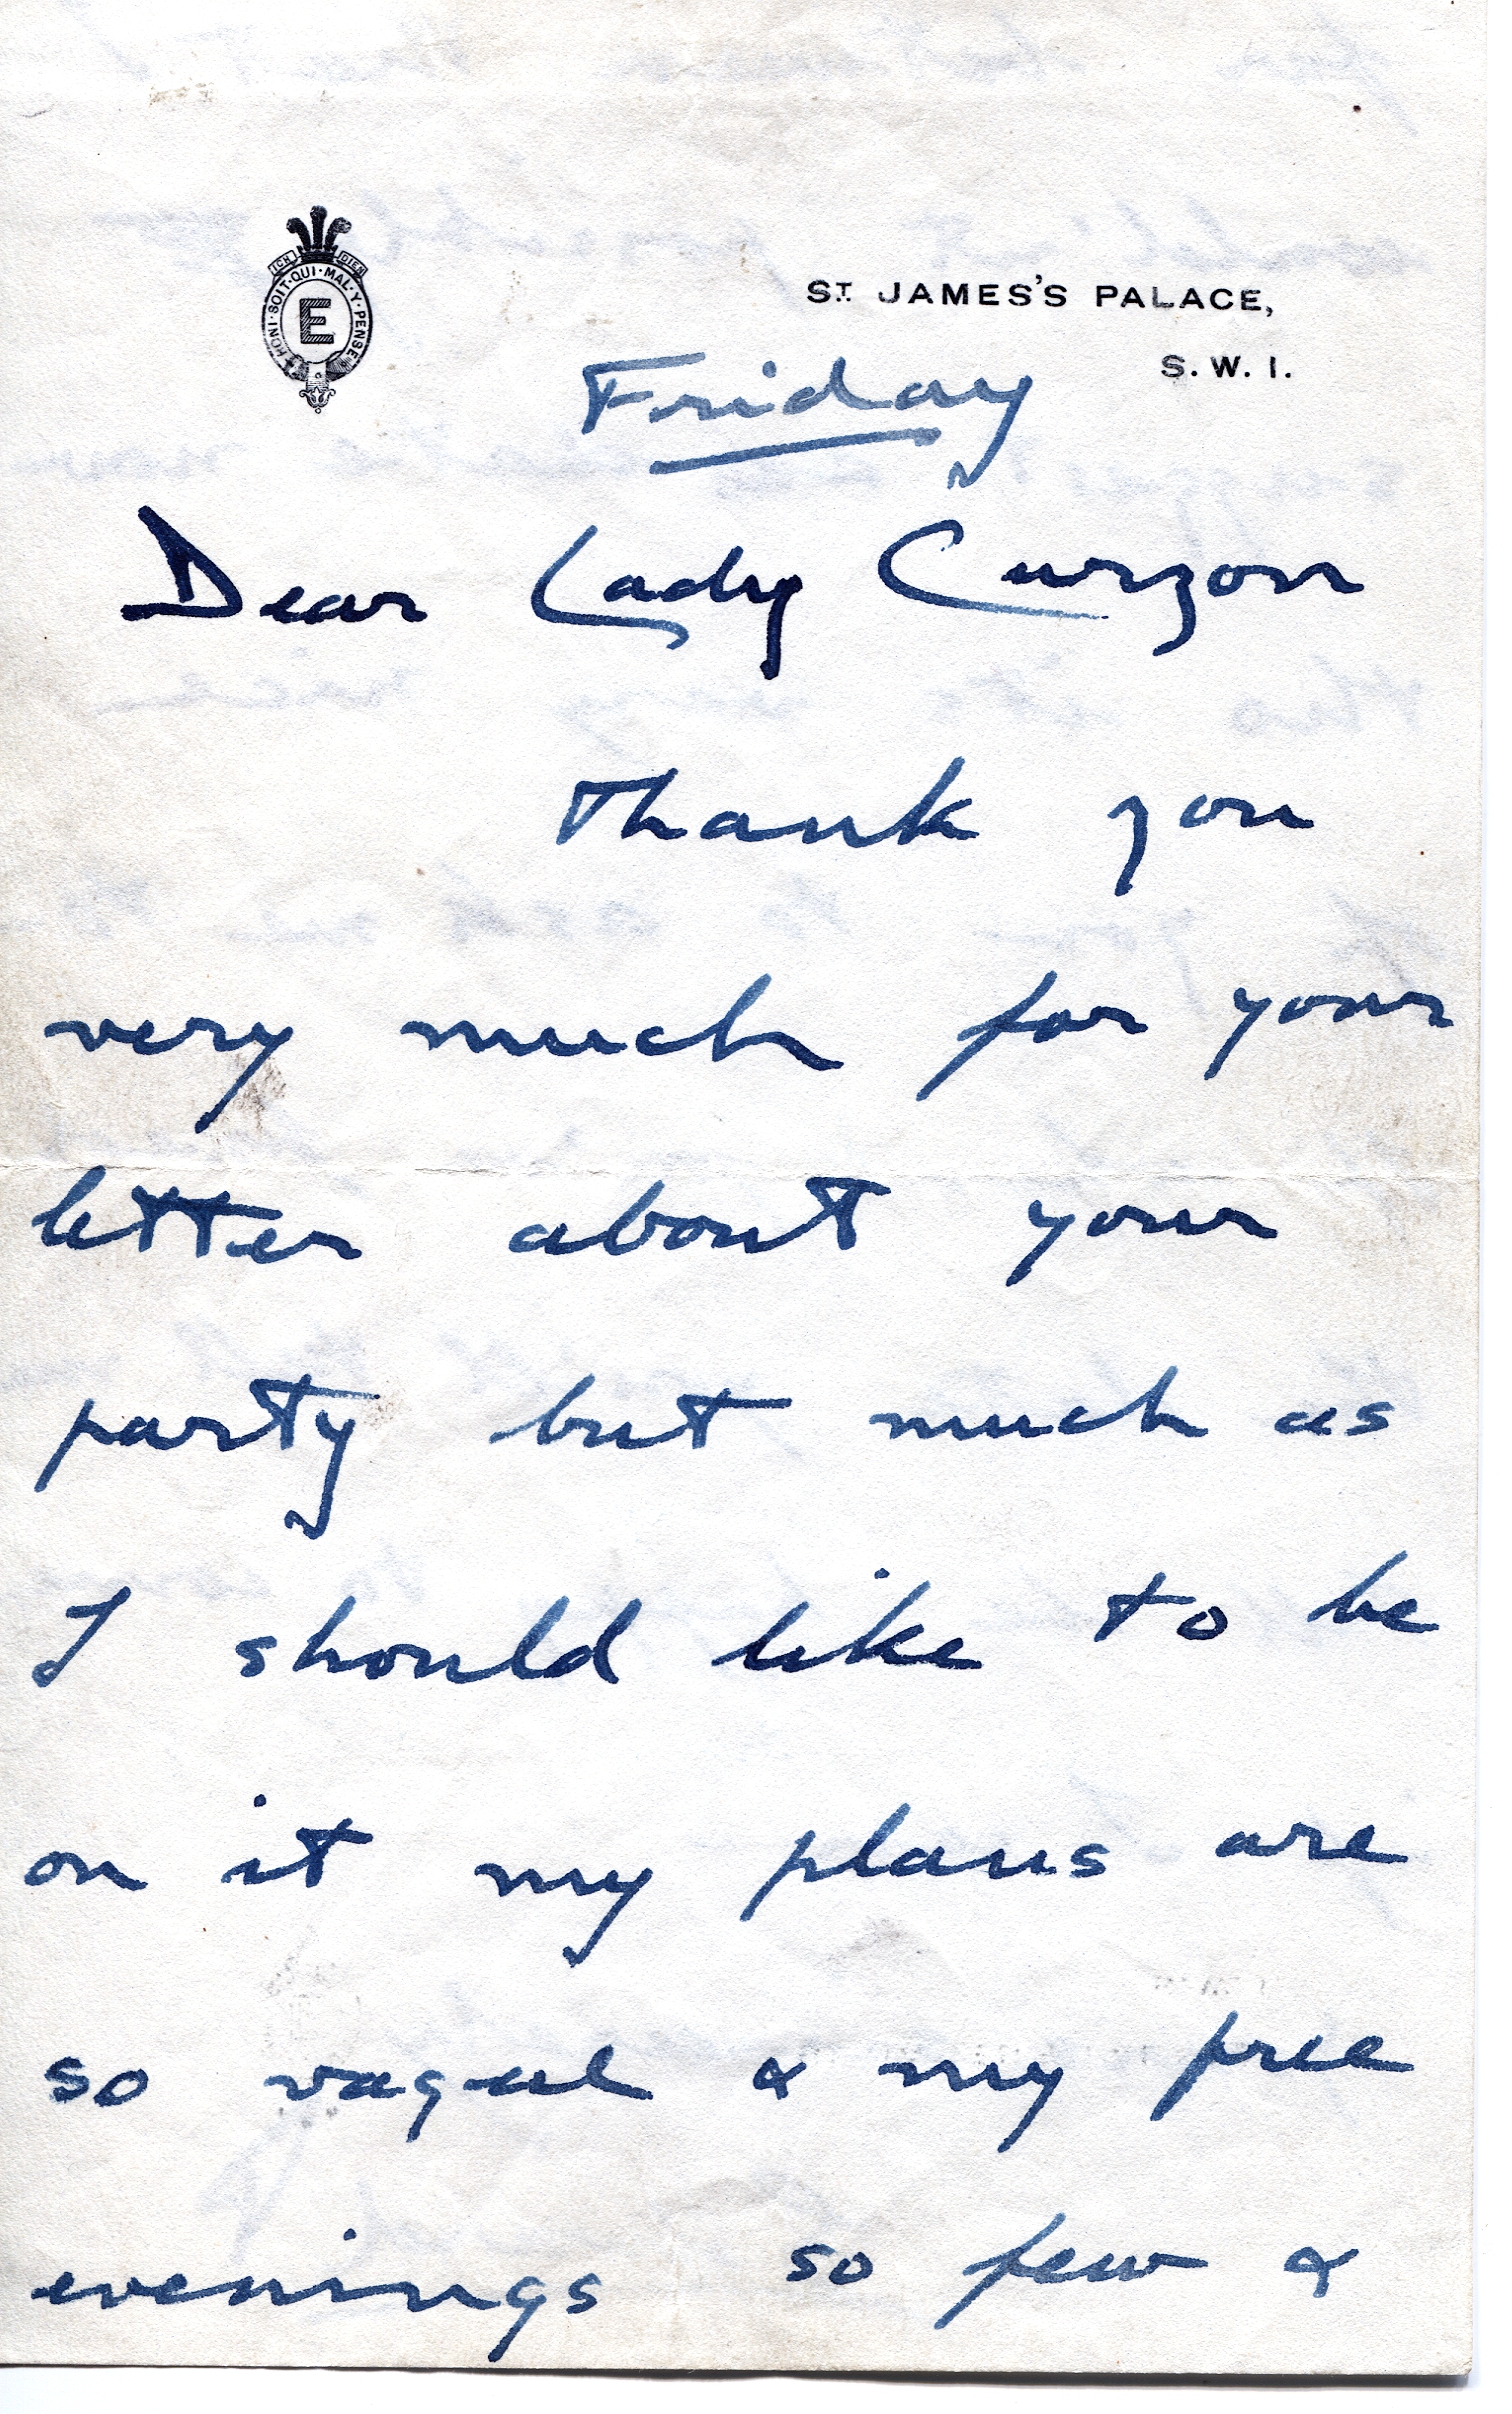 ICH DIEN
HONI·SOIT·QUI·MAL·Y·PENSE
E
ST. JAMES'S PALACE,
S. W. 1.
Friday
Dear Lady Curzon
Thank you
very much for your
letter about your
party but much as
I should like to be
on it my plans are
so vague & my free
evenings so few &